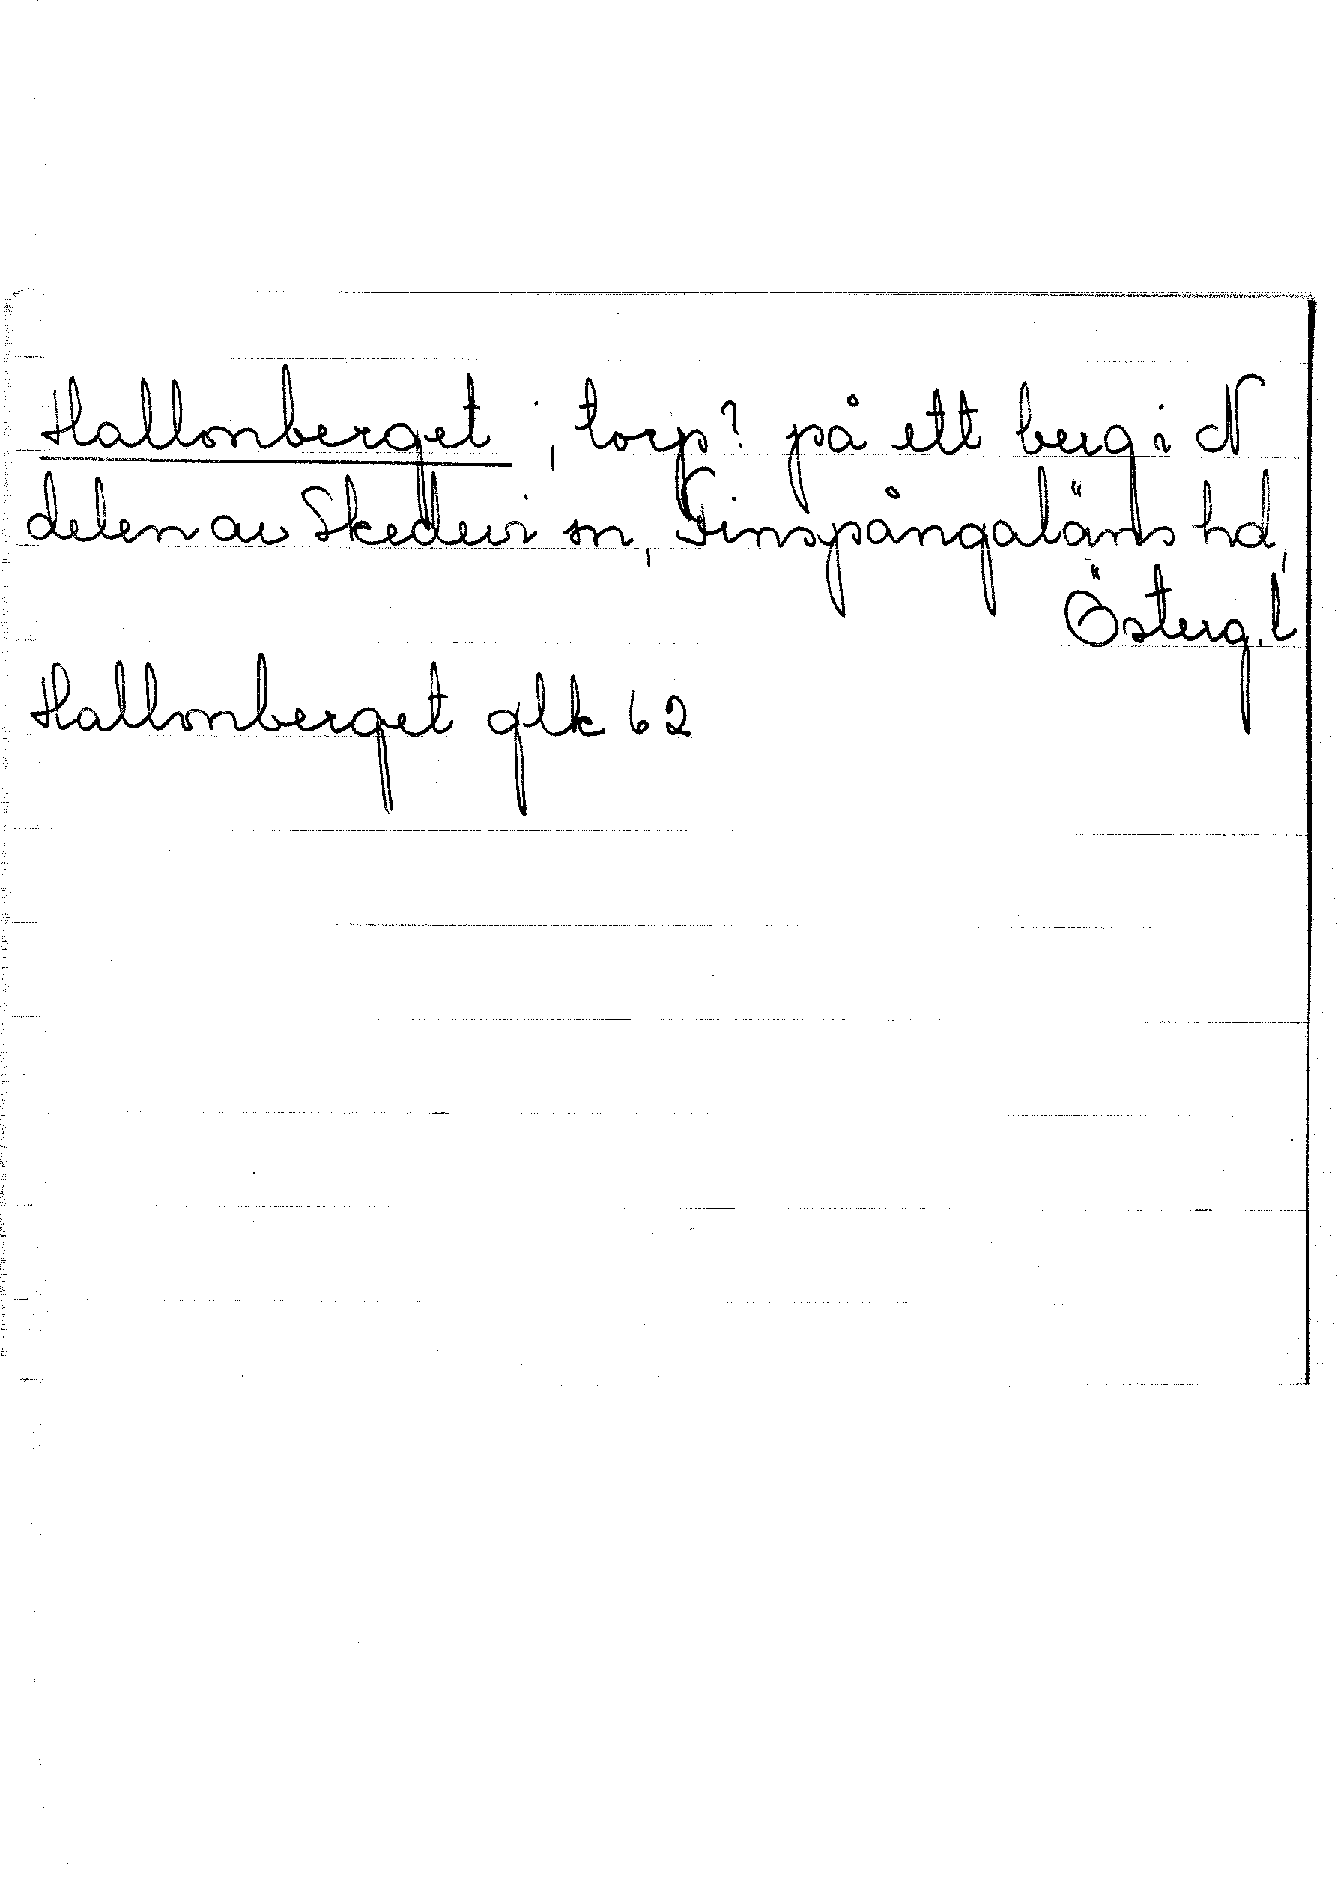 Hallonberget, torp? på ett berg i N
delen av Skedevi sn, Finspångaläns hd,
Österg. l
Hallonberget glk 62